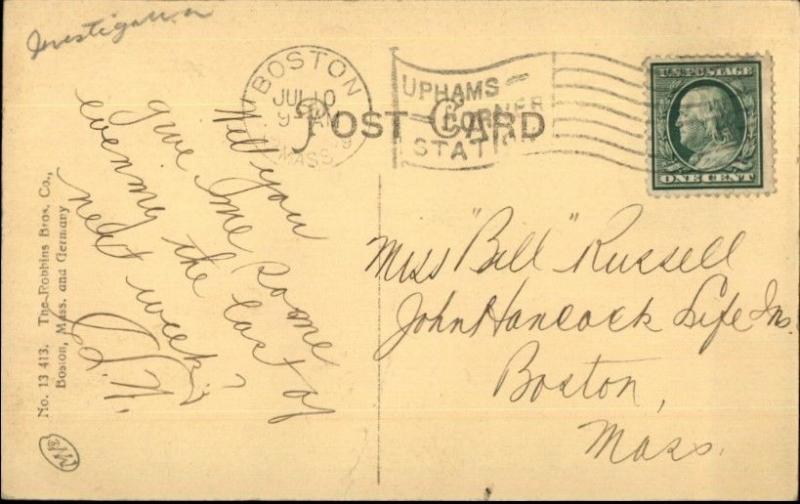 Investigation
BOSTON
JUL 10
9 AM
MASS.
UPHAMS
CORNER
STATION
U.S. POSTAGE
ONE CENT
POST CARD
Will you
give me some
evening the last of
next week?
Miss "Bill" Russell
John Hancock Life Ins.
Boston,
Mass.
No. 13 413. The Robbins Bros. Co.,
Boston, Mass. and Germany